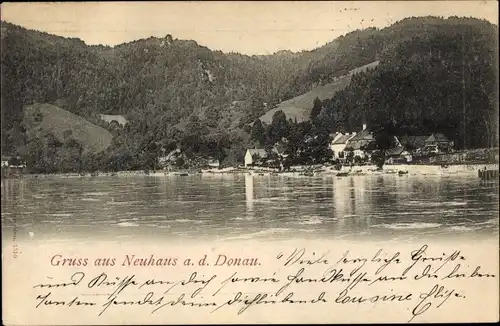 Gruss aus Neuhaus a. d. Donau.
Viele herzliche Grüsse
und Küsse an Dich, sowie einen Handkuss an die lieben
Tanten, sendet deine dich liebende Cousine Elise.